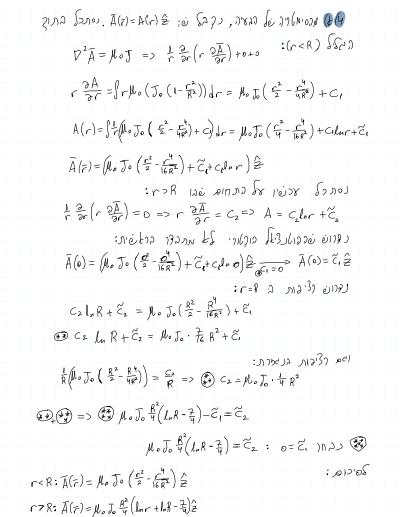 מהסימטריה של הבעיה, נקבל ש: Ā(r̄)=A(r)ẑ. נסתכל בתוך
הגליל (r<R):
∇²Ā = μ₀J => 1/r ∂/∂r (r ∂Ā/∂r)+0+0
r ∂A/∂r = ∫rμ₀(J₀(1-r²/R²))dr = μ₀J₀(r²/2 - r⁴/4R²) + C₁
A(r)=∫1/r(μ₀J₀(r²/2 - r⁴/4R²)+C₁)dr = μ₀J₀(r²/4 - r⁴/16R²)+C₁lnr+C̃₁
Ā(r̄)=(μ₀J₀(r²/2 - r⁴/16R²)+C̃₁+C₁lnr)ẑ
נסתכל עכשיו על התחום שבו r>R:
1/r ∂/∂r (r ∂Ā/∂r)=0 => r ∂Ā/∂r = C₂ => A = C₂lnr + C̃₂
נדרוש שהפוטנציאל הוקטורי לא מתבדר בראשית:
Ā(0)=(μ₀J₀(0²/2 - 0⁴/16R²)+C̃₁+C₁ln0)ẑ → C₁=0 Ā(0)=C̃₁ẑ
נדרוש רציפות ב r=R:
C₂lnR+C̃₂ = μ₀J₀(R²/2 - R⁴/16R²)+C̃₁
C₂ lnR+C̃₂ = μ₀J₀·7/16 R²+C̃₁
ואם רציפות בנגזרת:
1/R(μ₀J₀(R²/2 - R⁴/4R²)) = C₂/R => C₂=μ₀J₀·1/4 R²
=> μ₀J₀ R²/4(lnR-7/4)-C̃₁=C̃₂
μ₀J₀ R²/4(lnR-7/4)=C̃₂ : C̃₁=0 נבחר
לסיכום:
r<R: Ā(r̄)=μ₀J₀(r²/2 - r⁴/16R²)ẑ
r>R: Ā(r̄)=μ₀J₀ R²/4(lnr+lnR-7/4)ẑ